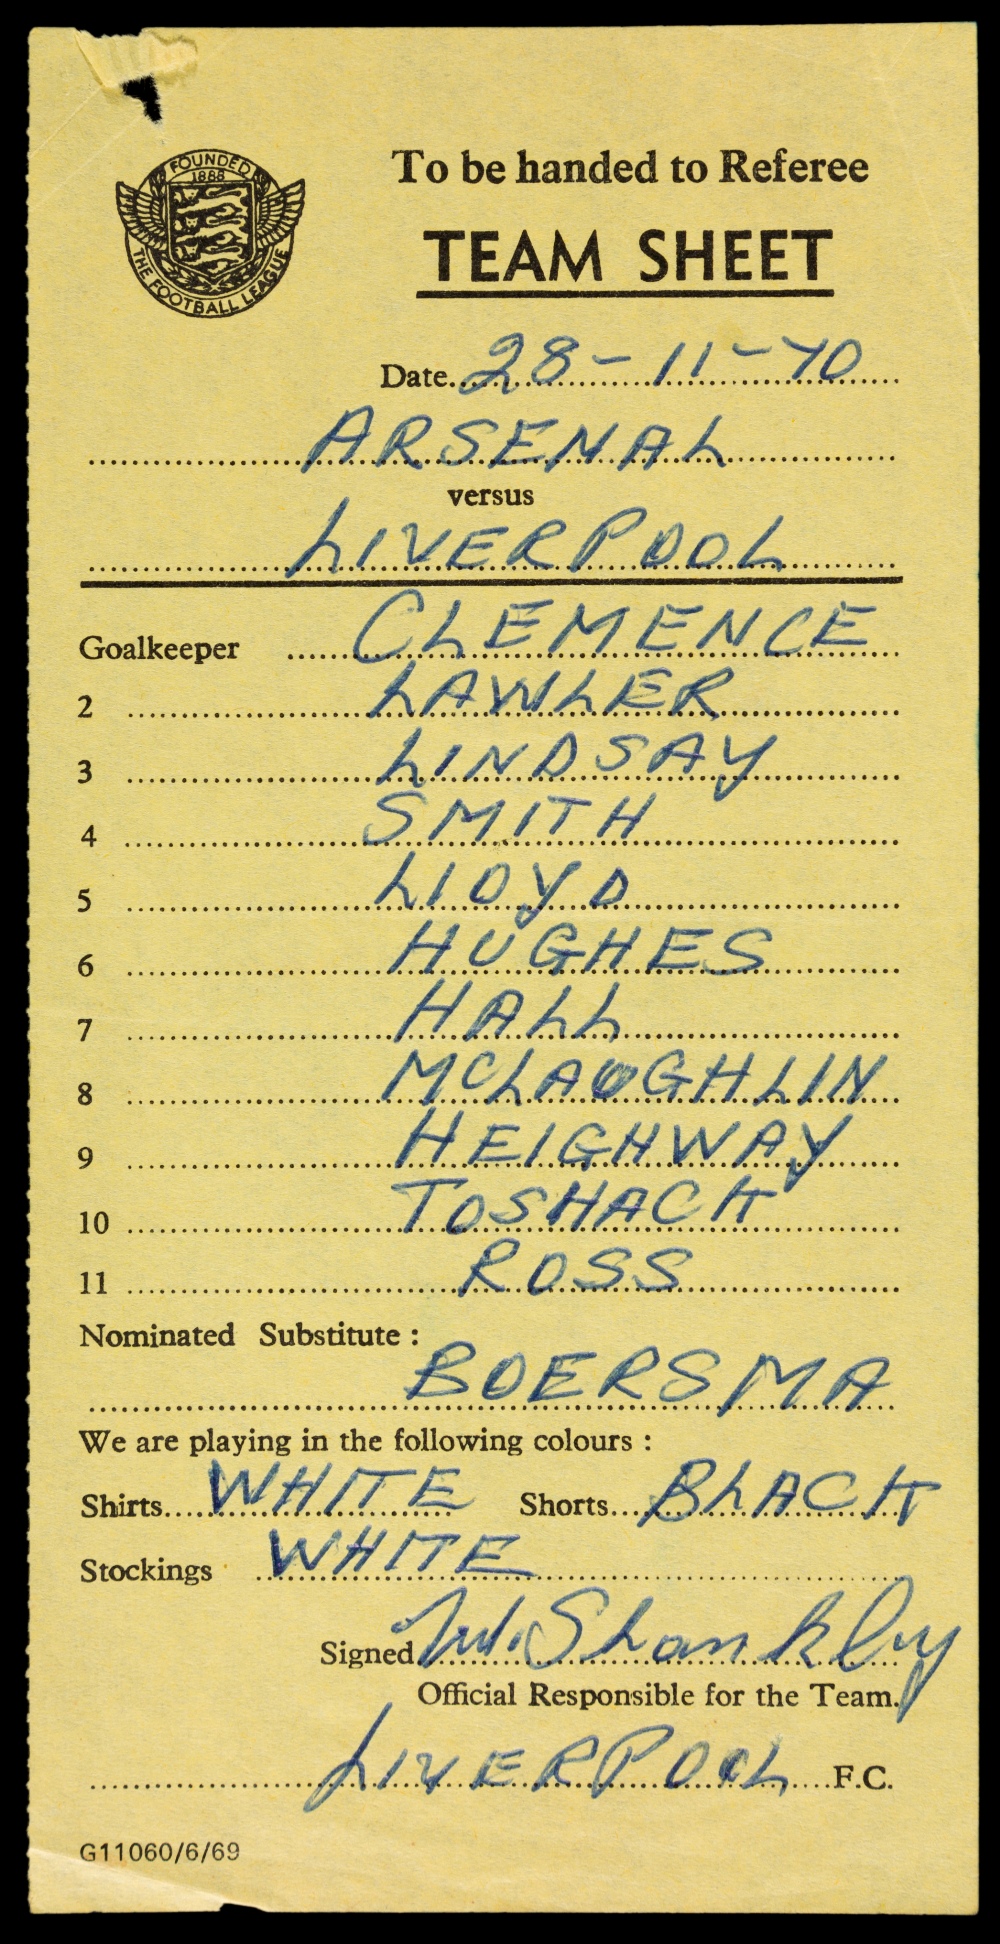 FOUNDED
1888
THE FOOTBALL LEAGUE
To be handed to Referee
TEAM SHEET
Date 28-11-70
ARSENAL
versus
LIVERPOOL
Goalkeeper CLEMENCE
2 LAWLER
3 LINDSAY
4 SMITH
5 LlOYD
6 HUGHES
7 HALL
8 McLAUGHLIN
9 HEIGHWAY
10 TOSHACK
11 ROSS
Nominated Substitute :
BOERSMA
We are playing in the following colours :
Shirts WHITE Shorts BLACK
Stockings WHITE
Signed W. Shankly
Official Responsible for the Team.
LIVERPOOL F.C.
G11060/6/69